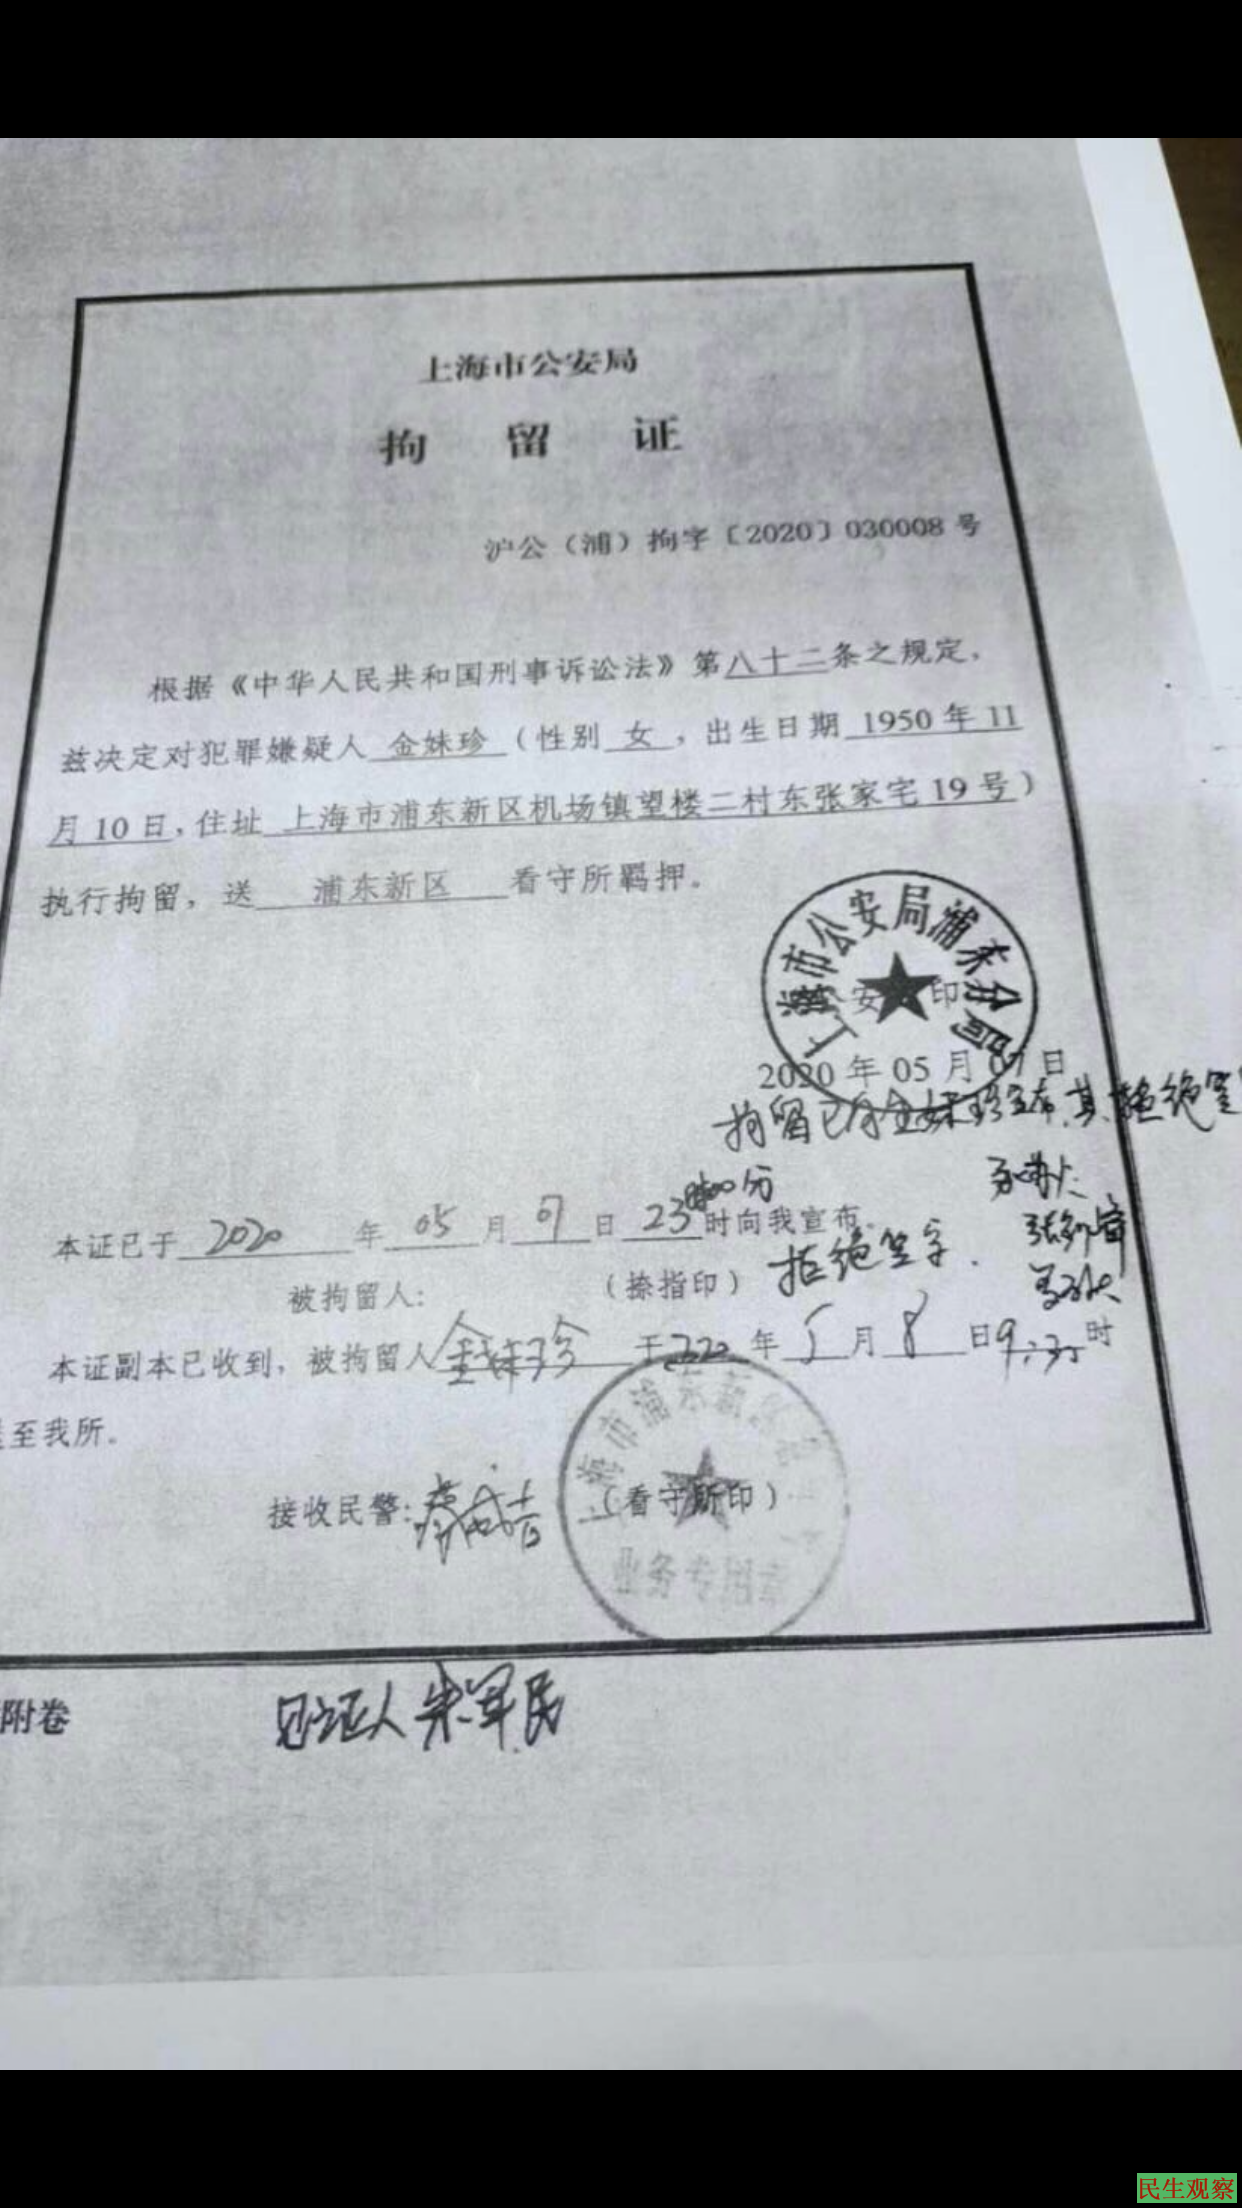 上海市公安局
拘 留 证
沪公（浦）拘字〔2020〕030008 号
根据《中华人民共和国刑事诉讼法》第八十二条之规定，
兹决定对犯罪嫌疑人 金妹珍（性别 女，出生日期 1950 年 11
月 10 日，住址 上海市浦东新区机场镇望楼二村东张家宅 19 号）
执行拘留，送 浦东新区 看守所羁押。
上海市公安局浦东分局
安 印
2020 年 05 月 07 日
拘留已向金妹珍宣布，其拒绝签
00分
本证已于 2020 年 05 月 07 日 23 时向我宣布
被拘留人： （捺指印） 拒绝签字.
本证副本已收到，被拘留人 金妹珍 于 2020 年 5 月 8 日 9:35 时
至我所。
接收民警： （看守所印）
上海市浦东新区
业务专用章
附卷
见证人 朱军民
民生观察